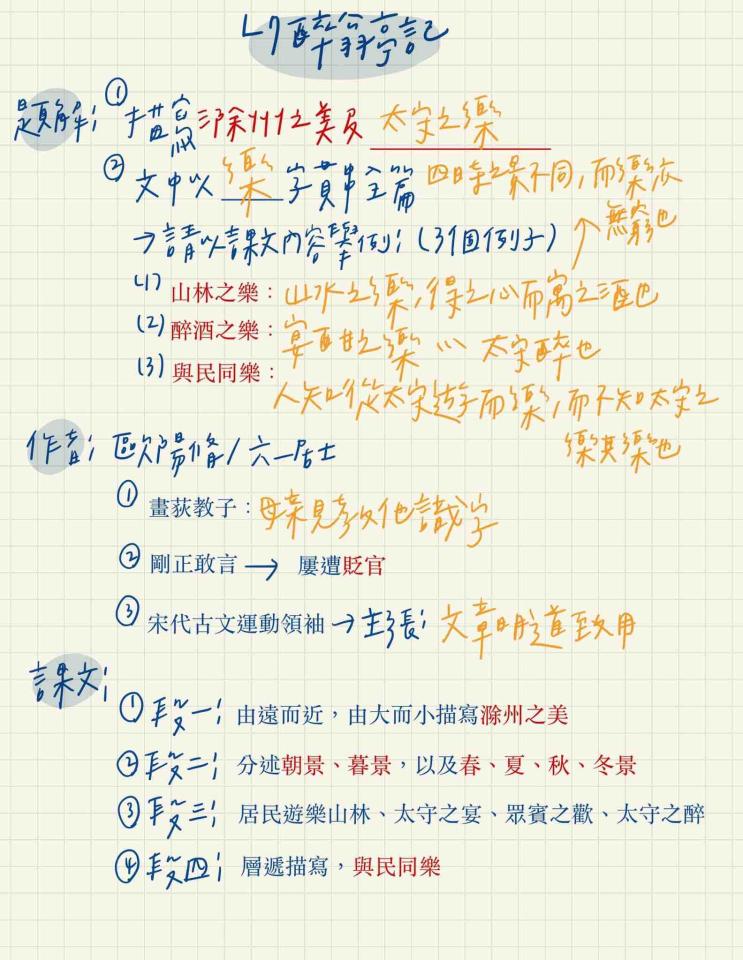 L7 醉翁亭記
題解:① 描寫滁州之美及 太守之樂
② 文中以 樂 字貫串全篇 四時之景不同,而樂亦
無窮也
→請以課文內容舉例:(3個例子)
(1) 山林之樂:山水之樂,得之心而寓之酒也
(2) 醉酒之樂:宴酣之樂 … 太守醉也
(3) 與民同樂:
人知從太守遊而樂,而不知太守之
樂其樂也
作者:歐陽脩/六一居士
① 畫荻教子:母親教他識字
② 剛正敢言 → 屢遭貶官
③ 宋代古文運動領袖→主張:文章明道致用
課文:
① 段一:由遠而近,由大而小描寫滁州之美
② 段二:分述朝景、暮景,以及春、夏、秋、冬景
③ 段三:居民遊樂山林、太守之宴、眾賓之歡、太守之醉
④ 段四:層遞描寫,與民同樂